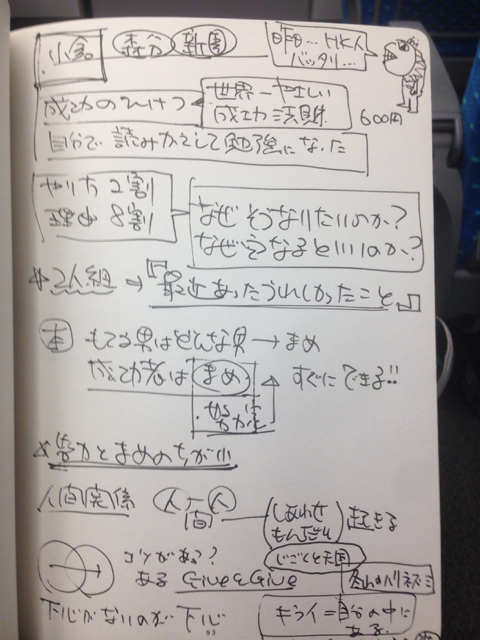 小倉 森分 新園
昨日… HKさん
バッタリ…
成功のひけつ
世界一やさしい
成功法則
600円
自分で読みかえして勉強になった
やり方2割
理由8割
なぜそうなりたいのか?
なぜそうなるといいのか?
2人組→『最近あったうれしかったこと』
本 もてる男はどんな男→まめ
成功者はまめ
すぐにできる!!
努力
努力とまめのちがい
人間関係 人-人
間
しあわせ
もんだい
起きる
じごくと天国
コツがある?
ある Give&Give
冬山のハリネズミ
下心がないのが下心
キライ=自分の中に
ある…
93